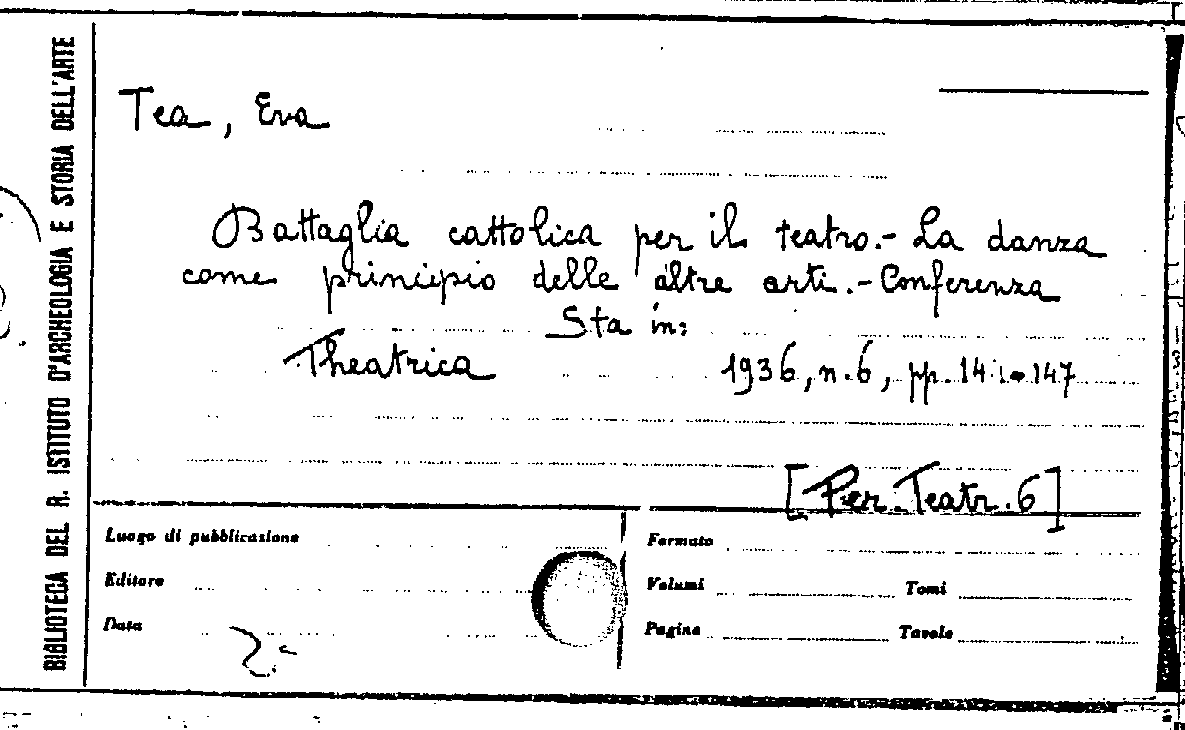 BIBLIOTECA DEL R. ISTITUTO D'ARCHEOLOGIA E STORIA DELL'ARTE
Tea, Eva
Battaglia cattolica per il teatro.- La danza
come principio delle altre arti.- Conferenza
Sta in:
Theatrica 1936, n.6, pp. 147
[Per. Teatr. 6]
Luogo di pubblicazione
Editore
Data
Formato
Volumi Tomi
Pagine Tavole